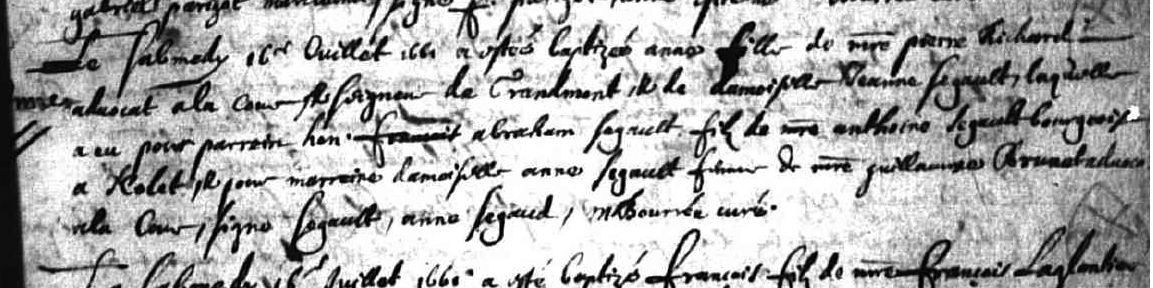 Le Sabmedy 16e Juillet 1661 a estée baptizée anne fille de mre pierre Richard
advocat a la cour & seigneur de Grandmont, & de damoiselle Jeanne segault, laquelle
a eu pour parrain hon. francois abraham segault filz de mre anthoine segault bourgeois
a & pour marraine damoiselle anne segault femme de mre guillaume Brunet advoca
a la Cour, signe Segault, anne segaud, Bourrée curé.
Le Sabmedy 16e Juillet 1661 a esté baptizé francois filz de mre francois